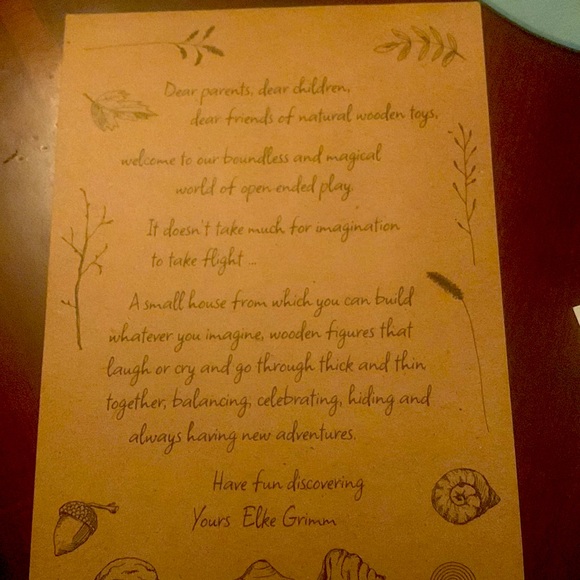 Dear parents, dear children,
dear friends of natural wooden toys,
welcome to our boundless and magical
world of open-ended play.
It doesn't take much for imagination
to take flight ...
A small house from which you can build
whatever you imagine, wooden figures that
laugh or cry and go through thick and thin
together, balancing, celebrating, hiding and
always having new adventures.
Have fun discovering
Yours Elke Grimm